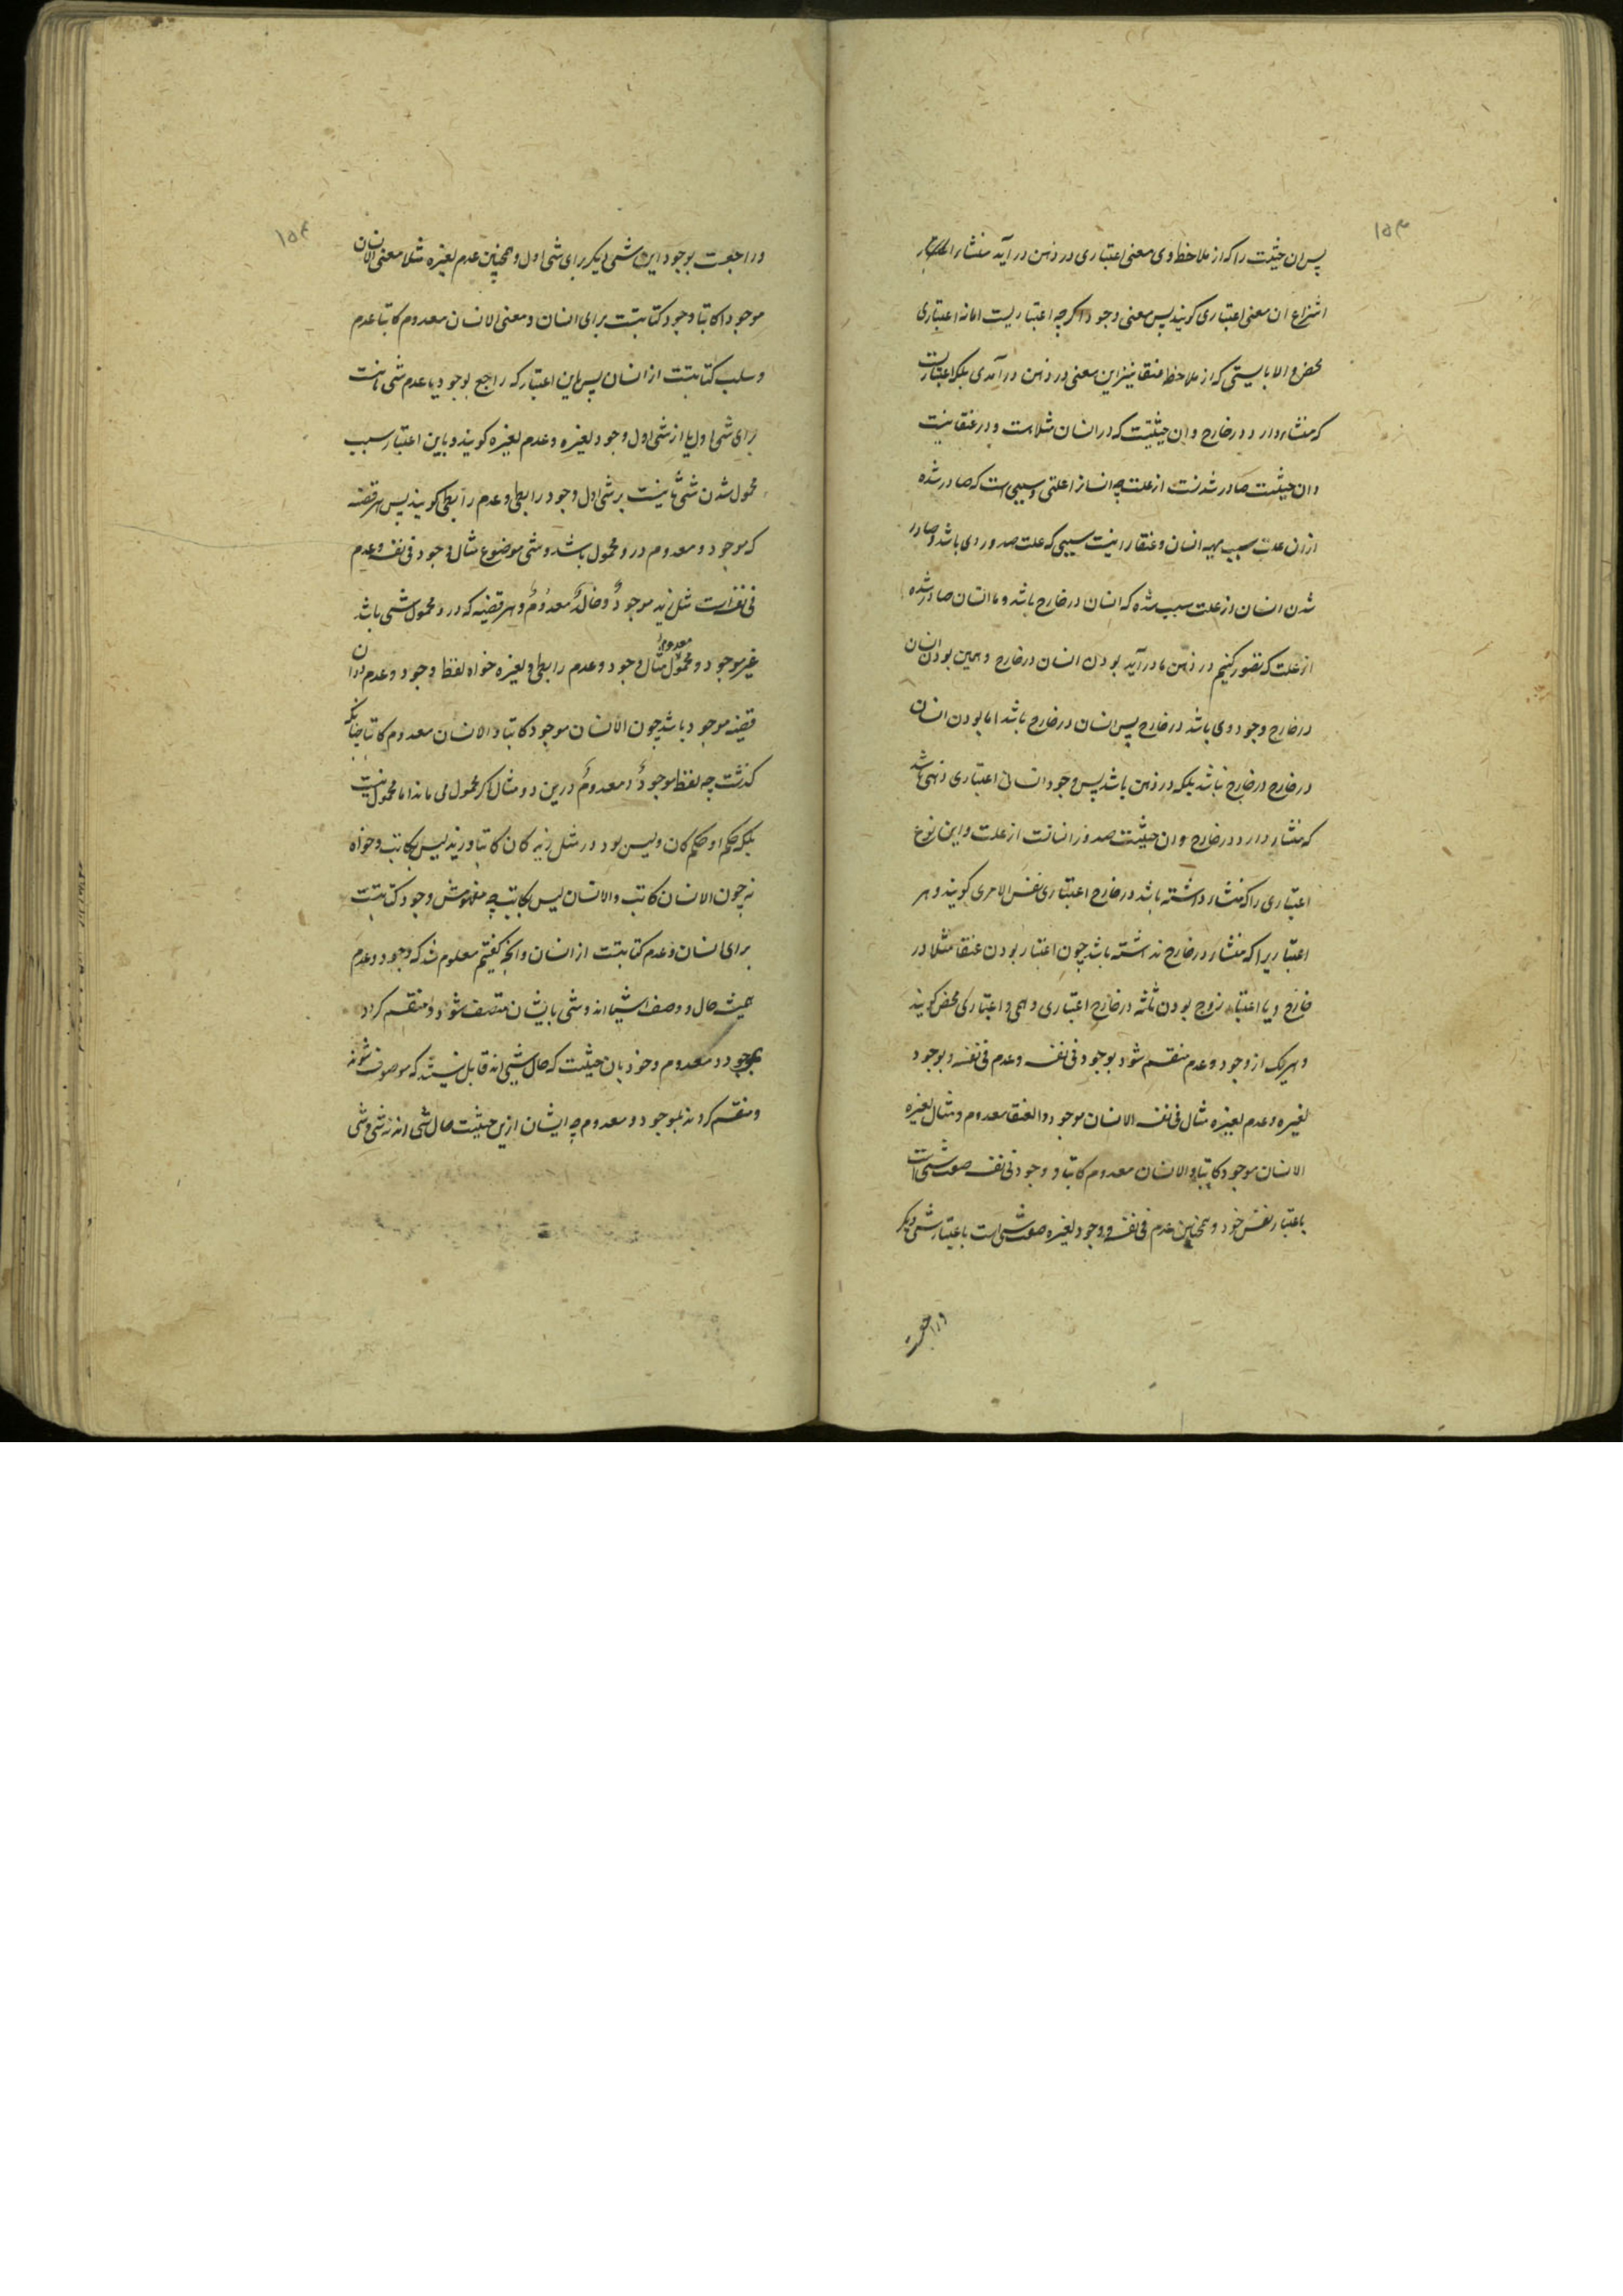 ۱۵۳
پس ان حیثیت را که از ملاحظه وی معنی اعتباری در ذهن در آید منشاء
انتزاع ان معنی اعتباری کویند پس معنی وجود اکرچه اعتباریست اما نه اعتباری
محض و الا بایستی که از ملاحظه عنقا نیز این معنی در ذهن در آمدی بلکه اعتباریست
که منشاء دارد در خارج و ان حیثیت که در انسان مثلا هست و در عنقا نیست
و ان حیثیت صادر شدنست از علت چه انسانرا علتی و سببی است که صادر شده
ازان علت سبب مهیه انسان و عنقا را نیست سببی که علت صدور وی باشد و صادر
شدن انسان از علت سبب شده که انسان در خارج باشد و ما انسان صادر شده
از علت که تصور کنیم در ذهن ما در آید بودن انسان در خارج و همین بودن انسان
در خارج وجود وی باشد در خارج پس انسان در خارج باشد اما بودن انسان
در خارج در خارج نباشد بلکه در ذهن باشد پس وجود انسان اعتباری ذهنی باشد
که منشاء دارد در خارج و ان حیثیت صدور انسانست از علت و این نوع
اعتباری را که منشاء داشته باشد در خارج اعتباری نفس الامری کویند و هر
اعتباریرا که منشاء در خارج نداشته باشد چون اعتبار بودن عنقا مثلا در
خارج و یا اعتبار زوج بودن ثلثه در خارج اعتباری وهمی و اعتباری محض کویند
و هریک از وجود و عدم منقسم شود بوجود فی نفسه و عدم فی نفسه و بوجود
لغیره و عدم لغیره مثال فی نفسه الانسان موجود و العنقا معدوم و مثال لغیره
الانسان موجود کاتبا و الانسان معدوم کاتبا و وجود فی نفسه صفت شئی است
باعتبار نفس خود و همچنین عدم فی نفسه و وجود لغیره صفت شئی است باعتبار شئی دیکر
و راجعست
۱۵۴
و راجعست بوجود این شئی دیکر برای شئی اول و همچنین عدم لغیره مثلا معنی الانسان
موجود کاتبا وجود کتابتست برای انسان و معنی الانسان معدوم کاتبا عدم
و سلب کتابتست از انسان پس باین اعتبار که راجع بوجود یا عدم شئ ثانیست
برای شئ اول یا از شئ اول وجود لغیره و عدم لغیره کویند و باین اعتبار سبب
محمول شدن شئ ثانیست بر شئ اول وجود رابطی و عدم رابطی کویند پس هر قضیه
که موجود و معدوم درو محمول باشد و شئ موضوع مثال وجود فی نفسه و عدم
فی نفسه است مثل زید موجودٌ و خالدٌ معدومٌ و هر قضیه که درو محمول شئی باشد
غیر موجود و معدوم مثال وجود و عدم رابطی و لغیره خواه لفظ وجود و عدم دران
قضیه موجود باشد چون الانسان موجود کاتبا و الانسان معدوم کاتبا چنانکه
کذشت چه لفظ موجودٌ و معدومٌ درین دو مثال اکر محمول می ماند اما محمول نیست
بلکه حکم او حکم کان و لیس بود در مثل زید کان کاتبا و زید لیس بکاتب و خواه
نه چون الانسان کاتب و الانسان لیس بکاتب چه مفهومش وجود کتابتست
برای انسان و عدم کتابتست از انسان و انچه کفتیم معلوم شد که وجود و عدم
همیشه حال و وصف اشیا اند و شئ بایشان متصف شود و منقسم کردد
بموجود و معدوم و خود بان حیثیت که حال شیئی اند قابل نیستند که موصوف شوند
و منقسم کردند بموجود و معدوم چه ایشان ازین حیثیت حال شئ اند نه شئ و شئ